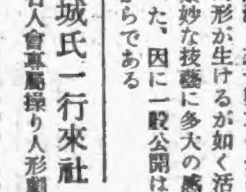 形が生けるが如く活
妙な技藝に多大の感
た、因に一般公開は
らである
城氏一行來社
名人會專屬操り人形劇